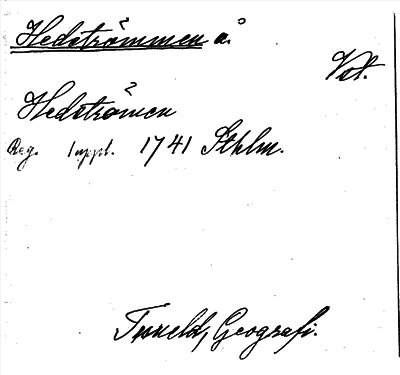 Hedströmmen å.
Vstm.
Hedströmen
Reg. 1 uppl. 1741 Sthlm.
Tuneld, Geografi.